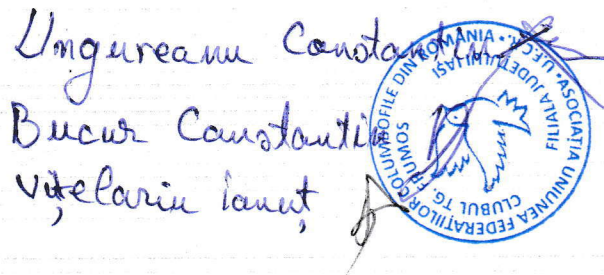 Ungureanu Constantin
Bucur Constantin
Vițelariu Ionuț
ASOCIAȚIA UNIUNEA FEDERAȚIILOR COLUMBOFILE DIN ROMÂNIA • U.F.C.R. •
FILIALA JUDEȚULUI IAȘI
CLUBUL TG. FRUMOS